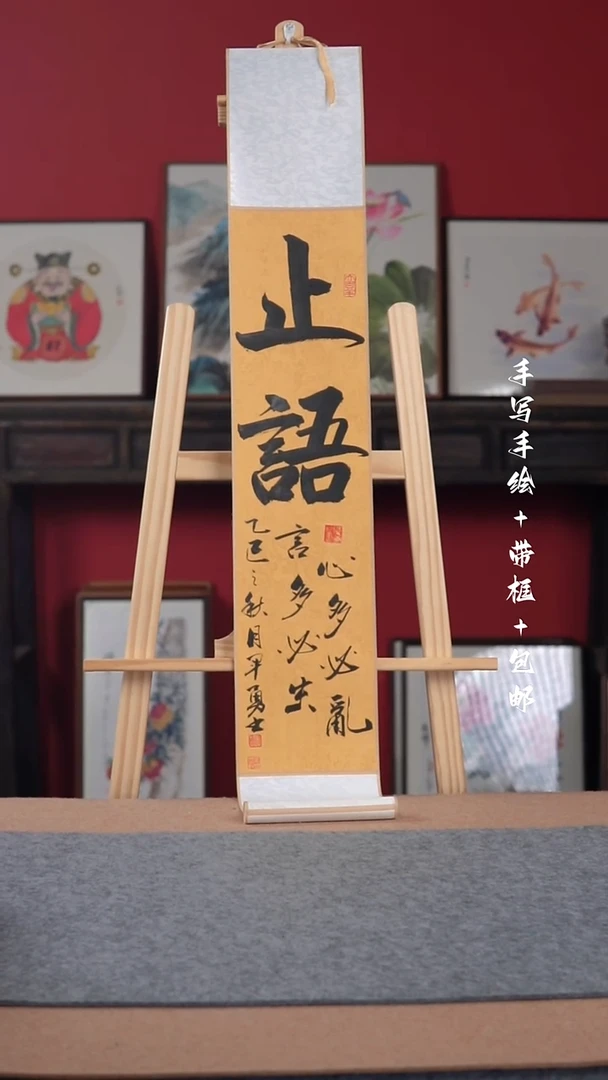 止語
心多必亂
言多必失
乙巳之秋月军勇士
手写手绘+带框+包邮